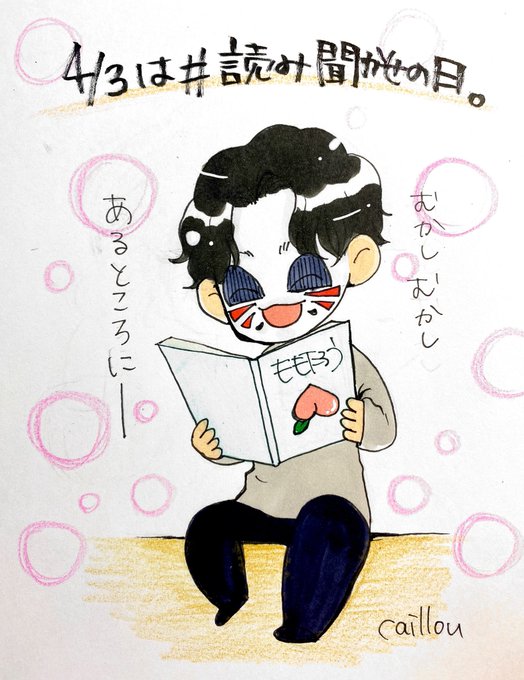 4/3は#読み聞かせの日。
むかしむかし
あるところにー
ももたろう
caillou